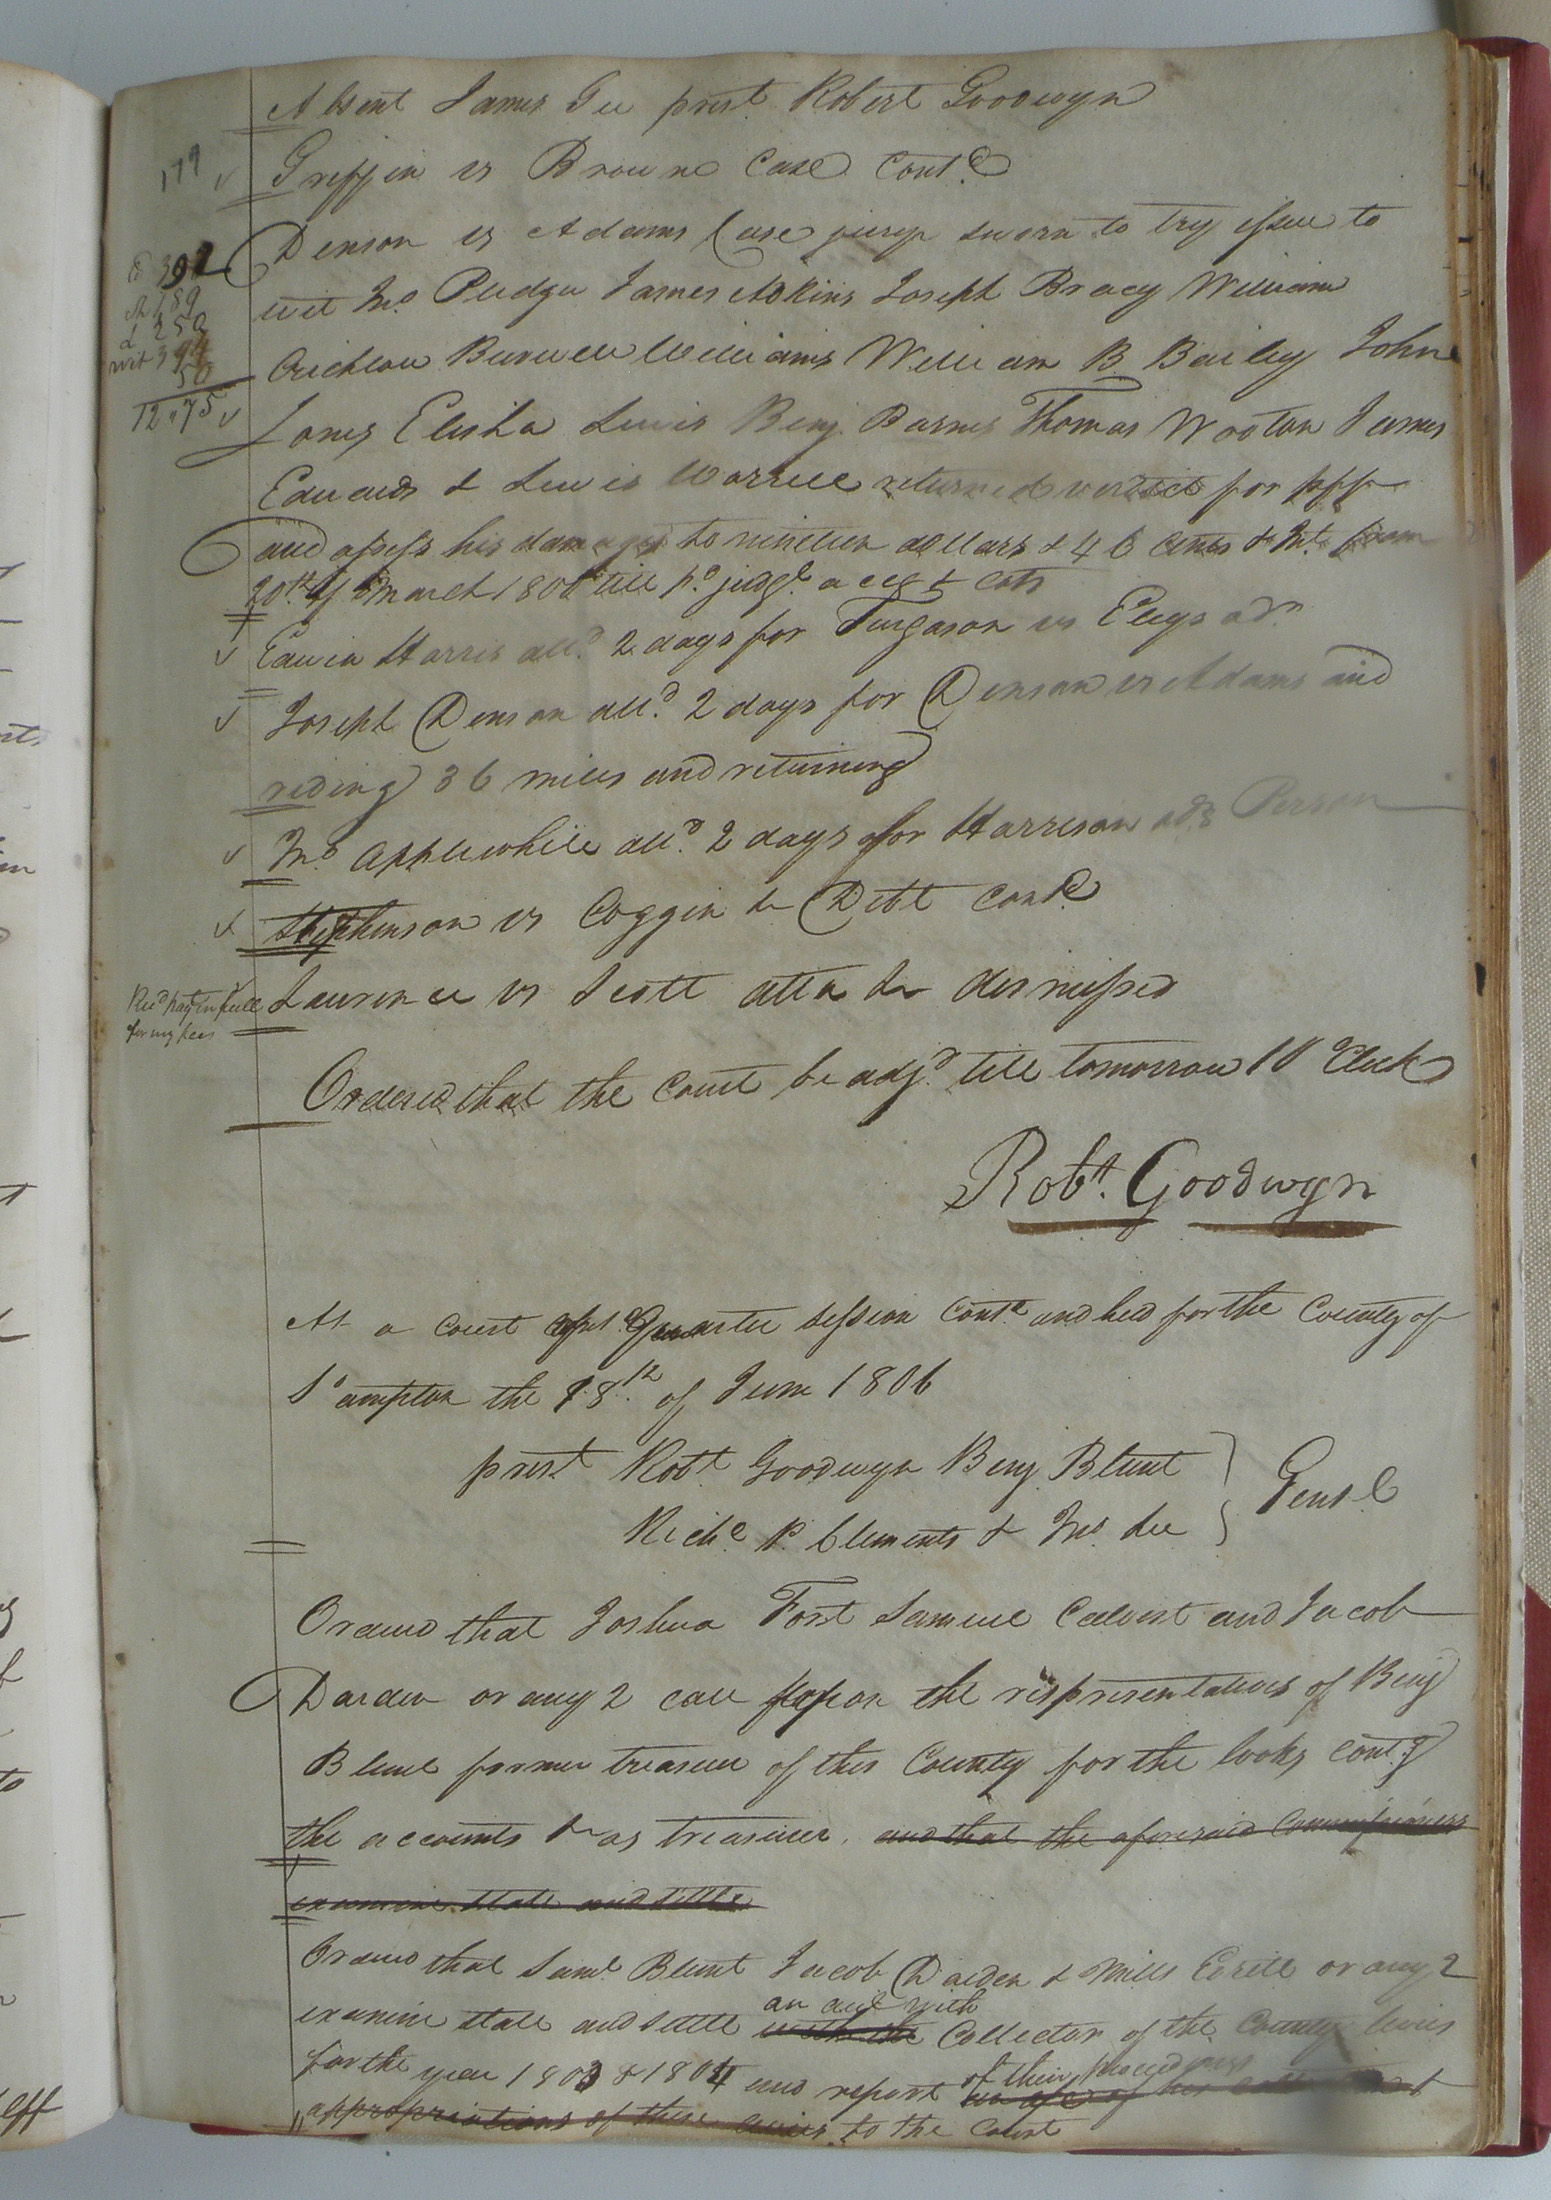 Absent James Gee prest. Robert Goodwyn
179 Griffin vs Browne Case Contd.
Denson vs Adams Case jury sworn to try issue to
392
189
250
wit 394
50
12.75
wit Jno. Pledger James Adkins Joseph Bracy William
Crichlow Burwell Williams William B. Bailey John
Jones Elisha Lewis Benj. Barnes Thomas Wooton James
Edwards & Lewis Worrell returned verdict for plff
and assess his damages to nineteen dollars & 46 cents & Int. from
20th. of March 1806 till pd. judgt. accg & cots
Edwin Harris alld. 2 days for Furgason vs Eleys adr
Joseph Denson alld. 2 days for Denson vs Adams and
riding 36 miles and returning
Jno. Applewhite alld. 2 days for Harrison ads Person
Stephenson vs Coggin &c Debt Contd
Recd payt in full
for my fees
Laurence vs Scott atta &c dismissed
Ordered that the Court be adjd. till tomorrow 10 oClock
Robt. Goodwyn
At a Court Quarter Session Contd. and held for the County of
So. ampton the 18th. of June 1806
prest Robt Goodwyn Benj. Blunt
Richd. P. Clements & Jno. Lee
Gent.
Ordered that Joshua Fort Samuel Calvert and Jacob
Darden or any 2 call upon the representatives of Benj
Blunt former treasurer of this County for the books contg
the accounts &c as treasurer. and that the aforesaid Commissioners
examine state and settle
Ordered that Saml. Blunt Jacob Darden & Mills Ezell or any 2
an acct with
examine state and settle with the Collector of the County levies
of their proceedings
for the year 1803 & 1804 and report an of his
appropriations of these levies to the Court